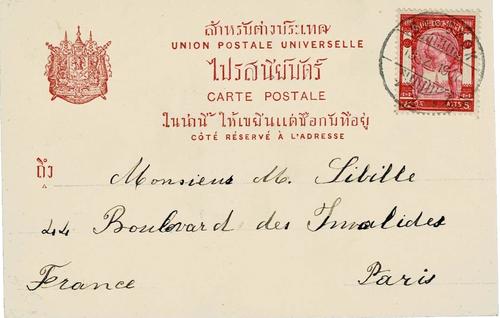 สำหรับต่างประเทศ
UNION POSTALE UNIVERSELLE
ไปรสนียบัตร์
CARTE POSTALE
ในน่านี้ ให้เขียนแต่ชื่อกับที่อยู่
CÔTÉ RÉSERVÉ À L'ADRESSE
ถึง
Monsieur M. Sibille
44 Boulevard des Invalides
France Paris